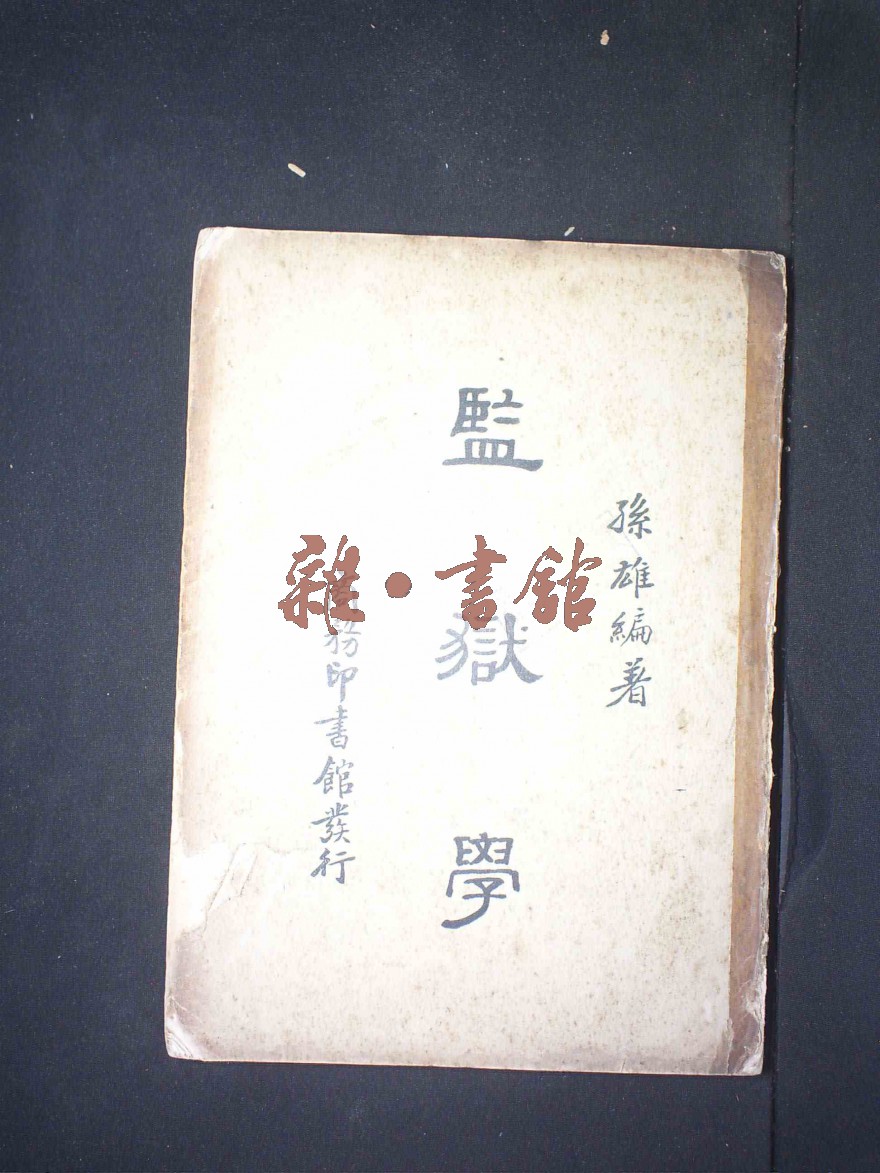 孫雄編著
監獄學
商務印書館發行
雜·書館